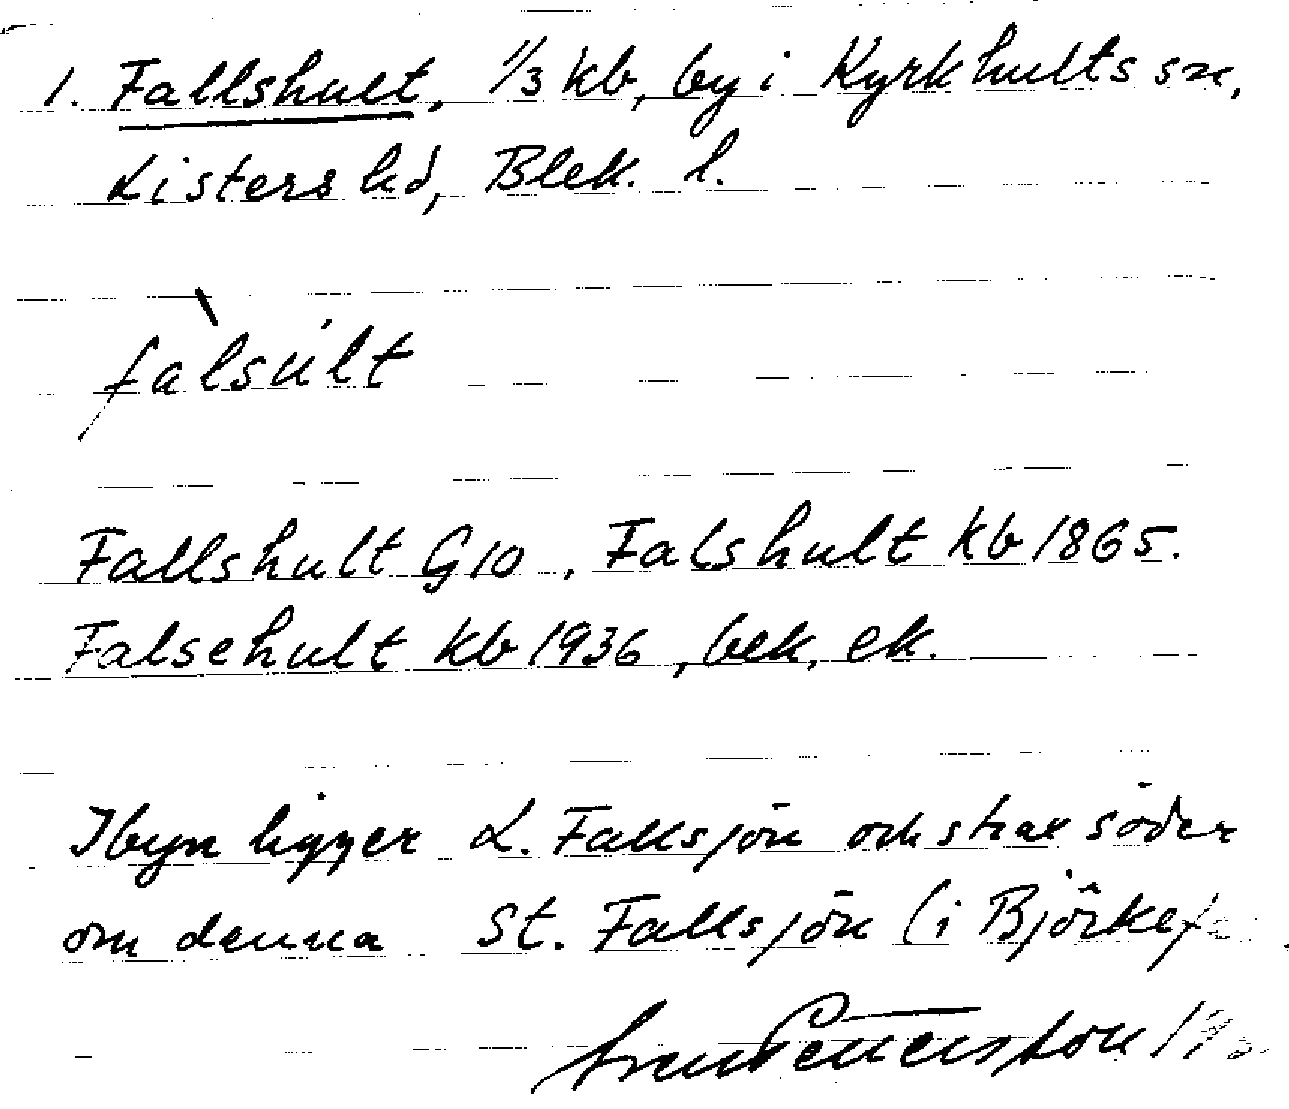 1. Fallshult, 1/3 kb, by i Kyrkhults sn,
Listers hd, Blek. l.
fàlsúlt
Fallshult G10, Falshult kb 1865.
Falsehult kb 1936, bek, ek.
I byn ligger L. Fallsjön och strax söder
om denna St. Fallsjön (i Björkef
Pettersson